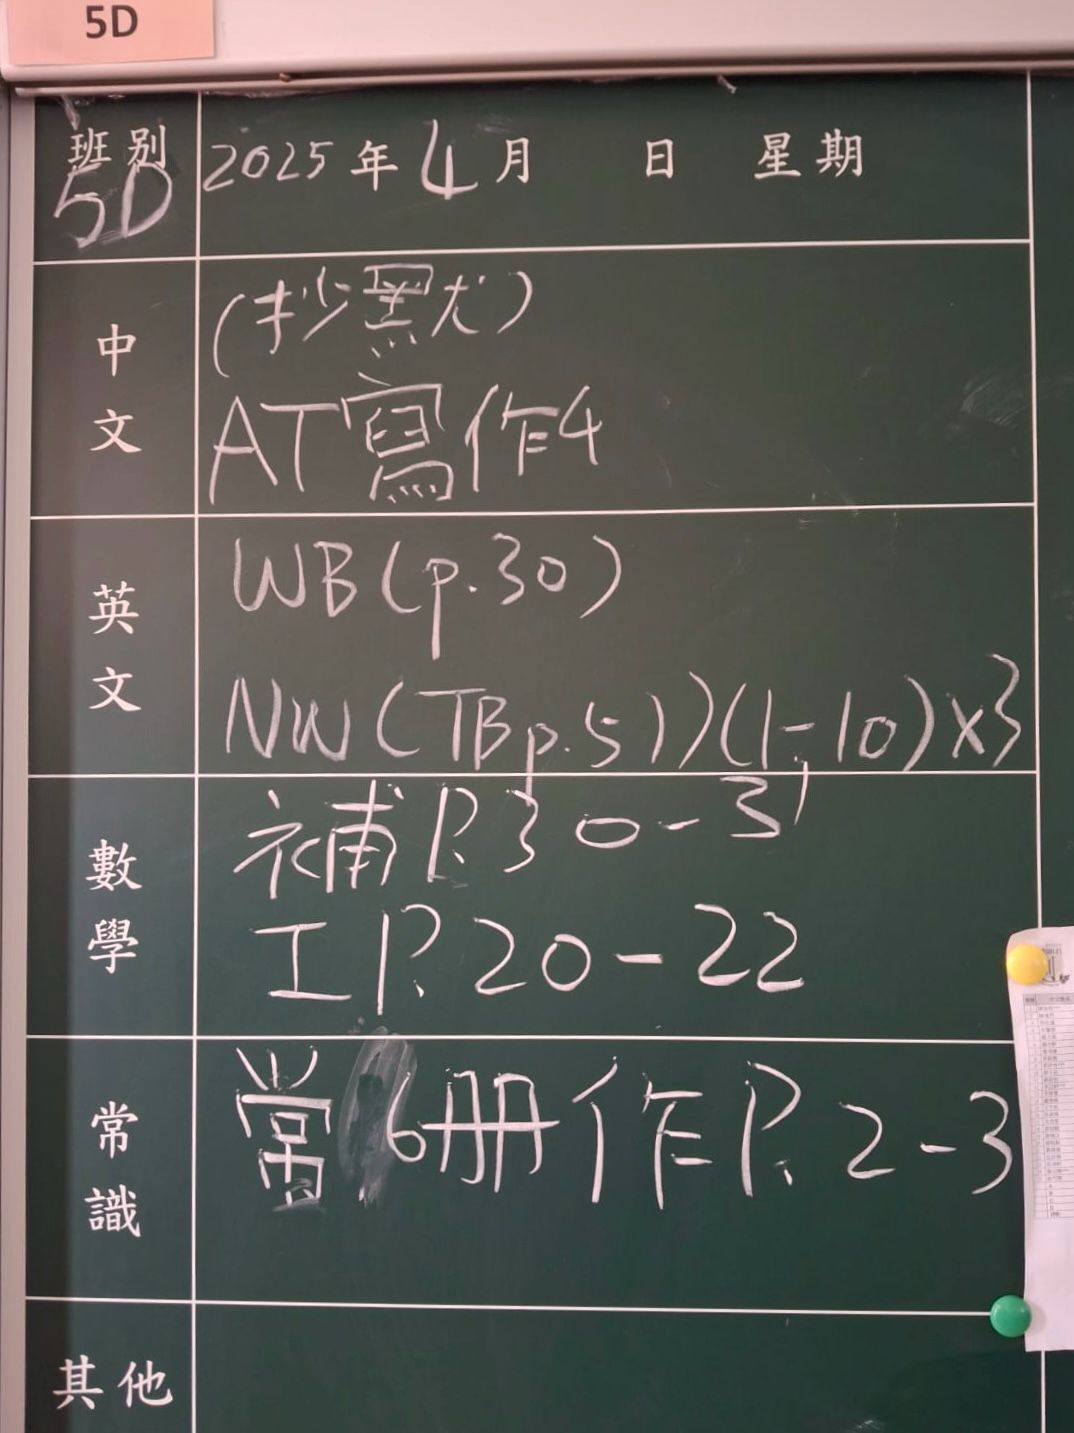 5D
班別 2025年4月 日 星期
5D
中文
(抄默)
AT寫作4
英文
WB(p.30)
NW(TBp.51)(1-10)x3
數學
補P.30-31
工P.20-22
常識
常6冊作P.2-3
其他